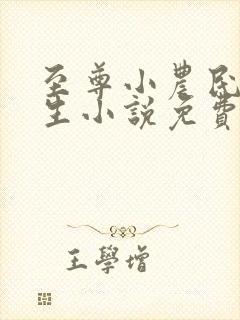 至尊小農民
生小說免費
王學增